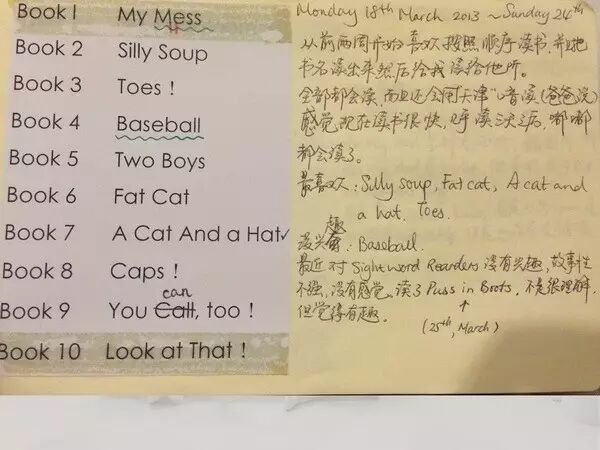 Book 1 My Mess
Book 2 Silly Soup
Book 3 Toes !
Book 4 Baseball
Book 5 Two Boys
Book 6 Fat Cat
Book 7 A Cat And a Hat✓
Book 8 Caps !
can
Book 9 You Call, too !
Book 10 Look at That !
Monday 18th March 2013 ~ Sunday 24th
从前两周开始喜欢按照顺序读书,并且把
书名读出来然后给我读给他听。
全部都会读,而且还会用天津口音读(爸爸说)
感觉现在读书很快,呼读三次之后,嘟嘟
都会读了。
最喜欢:Silly soup, Fat cat, A cat and
a hat. Toes.
趣
没兴: Baseball.
最近对Sightword Rearders没有兴趣,故事性
不强,没有感觉。读了Puss in Boots,不是很理解,
但觉得有趣。
(25th, March)